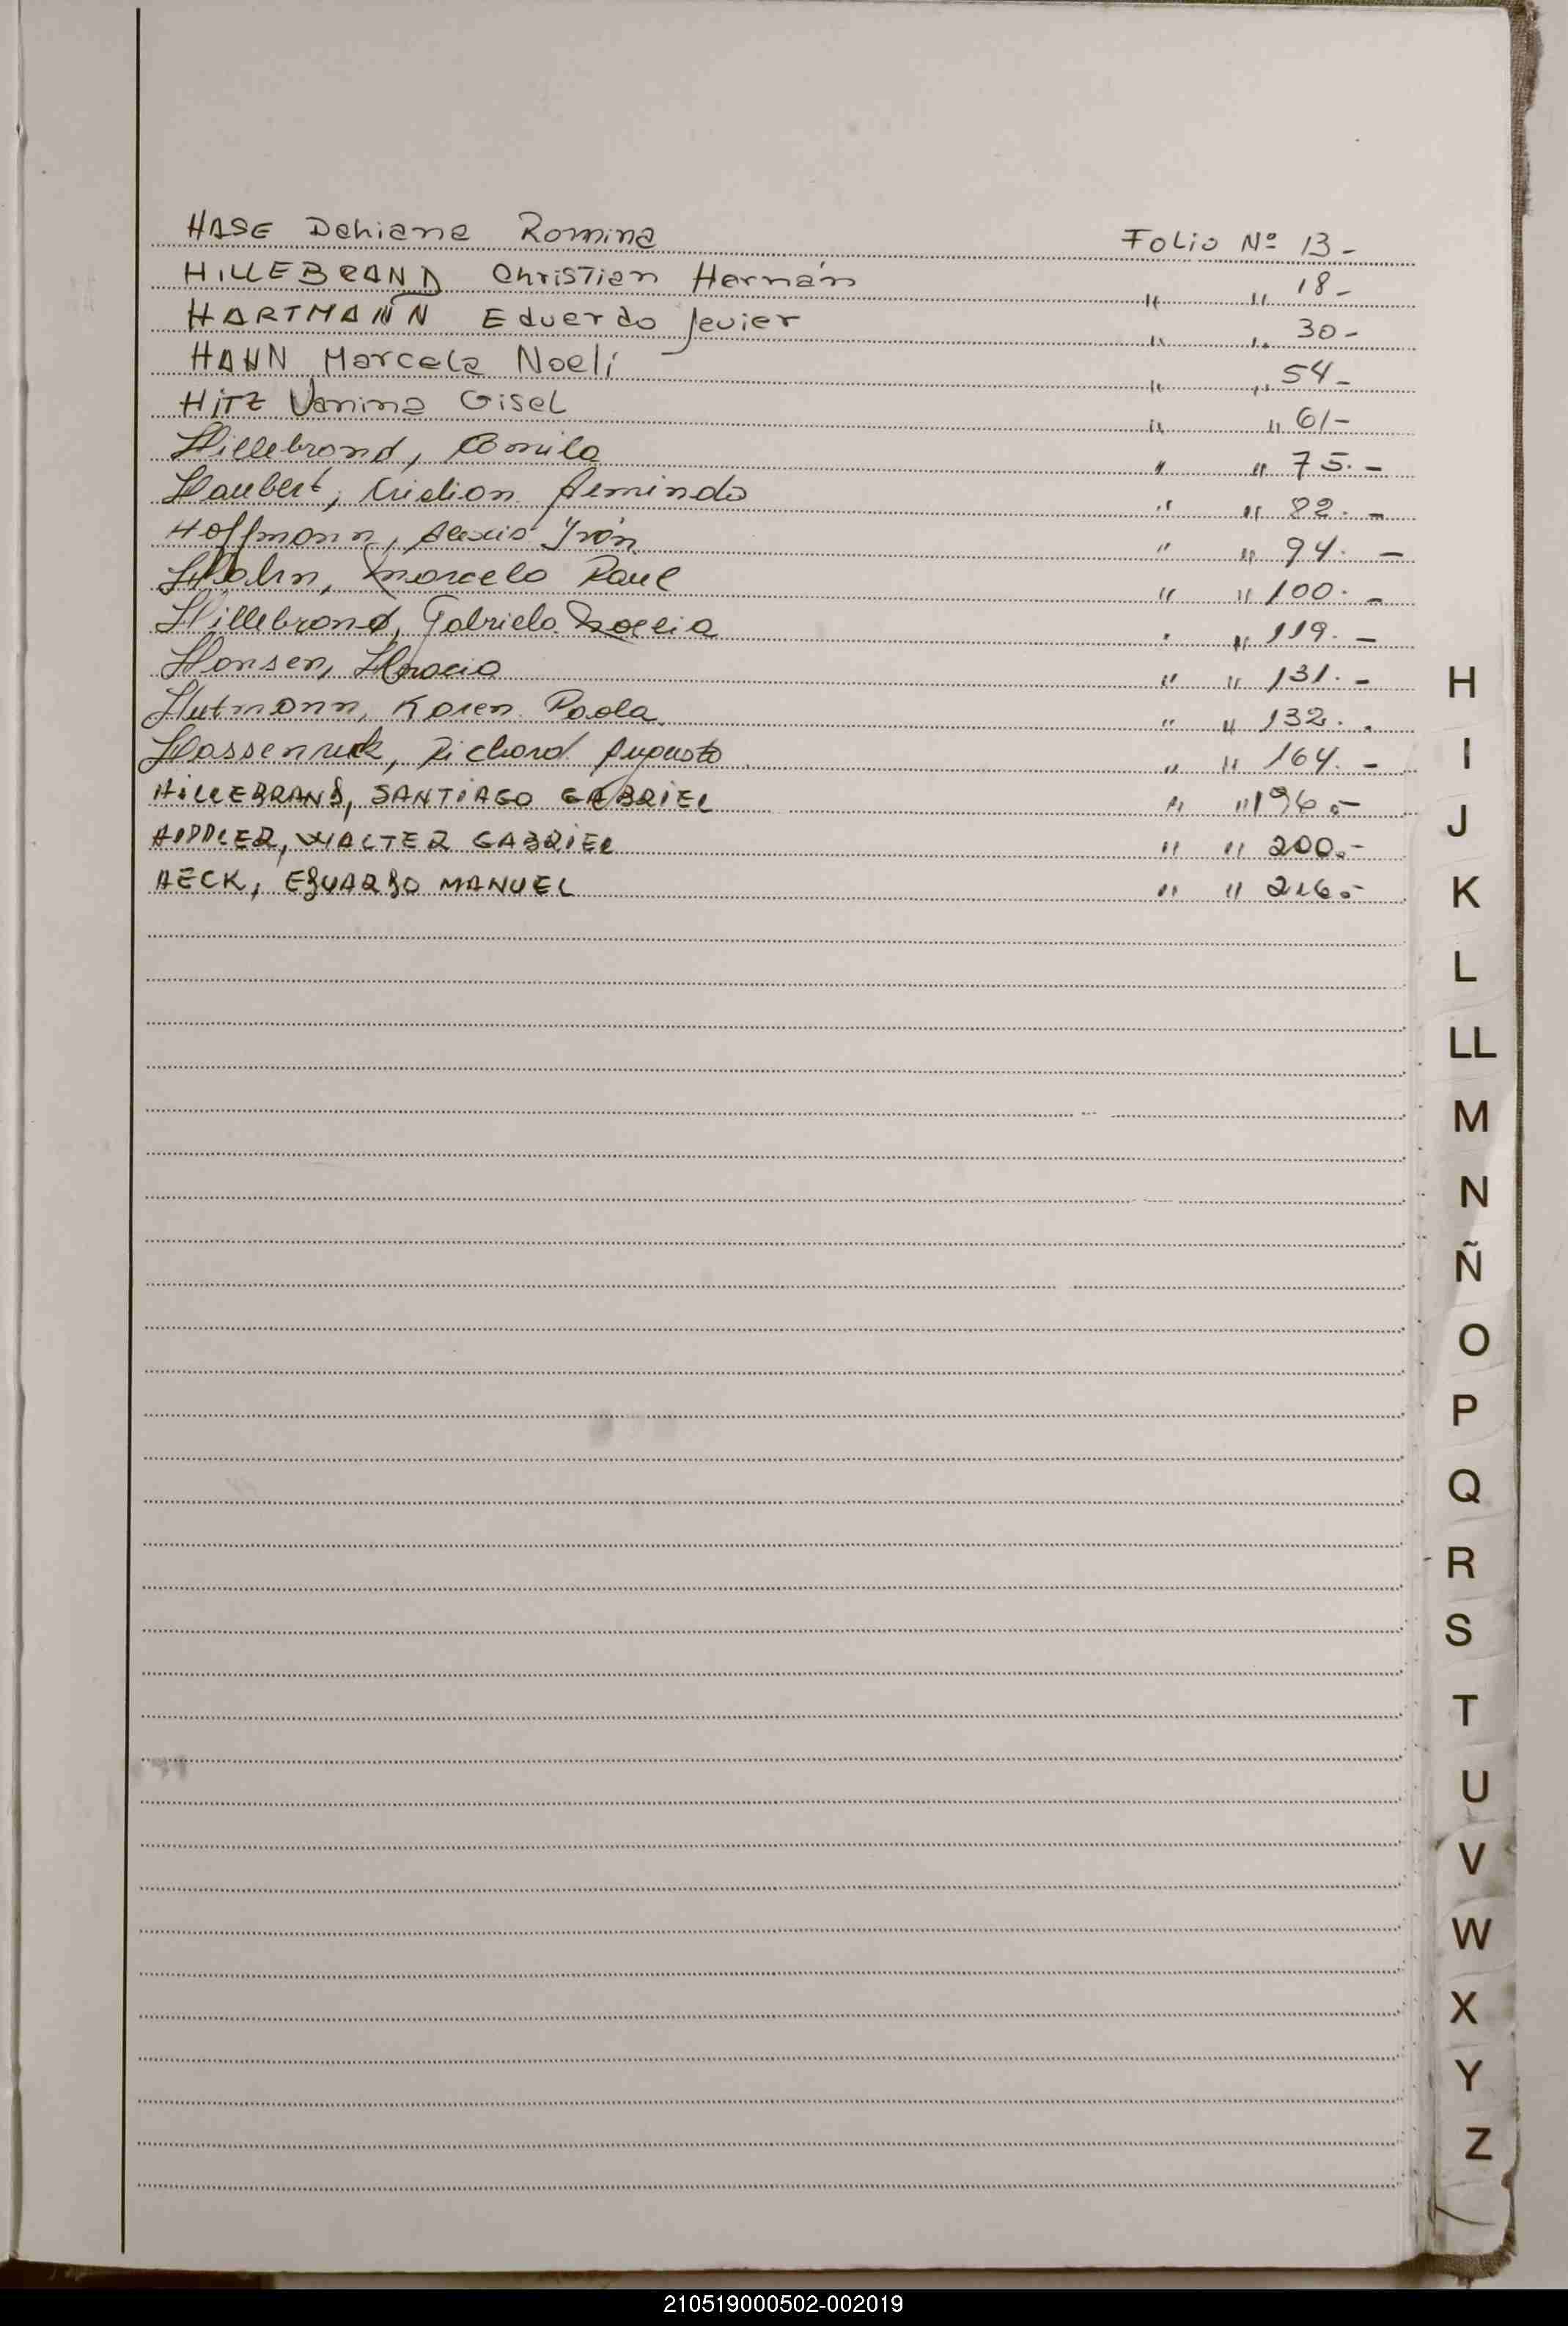 HASE Dahiana Romina Folio Nº 13-
HILLEBRAND Christian Hernán " " 18-
HARTMANN Eduardo Javier " " 30-
HAHN Marcela Noelí " " 54-
HITZ Vanina Gisel " " 61-
Hillebrand, Camila " " 75.-
Haubert, Cristian Armindo " " 82.-
Hoffmann, Alexis Iván " " 94.-
Hahn, Marcelo Raul " " 100.-
Hillebrand, Gabriela Noelia " " 119.-
Hansen, Horacio " " 131.-
Hutmann, Karen Paola " " 132.-
Hassenruck, Richard Augusto " " 164.-
HILLEBRAND, SANTIAGO GABRIEL " " 196.-
WALTER GABRIEL " " 200.-
HECK, EDUARDO MANUEL " " 216.-
H
I
J
K
L
LL
M
N
Ñ
O
P
Q
R
S
T
U
V
W
X
Y
Z
210519000502-002019